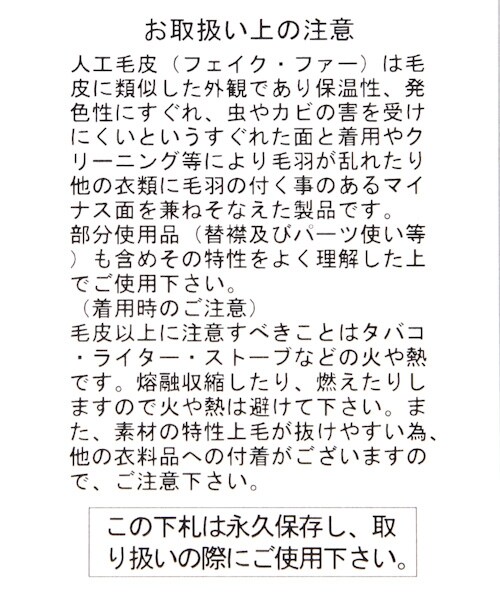 お取扱い上の注意
人工毛皮（フェイク・ファー）は毛
皮に類似した外観であり保温性、発
色性にすぐれ、虫やカビの害を受け
にくいというすぐれた面と着用やク
リーニング等により毛羽が乱れたり
他の衣類に毛羽の付く事のあるマイ
ナス面を兼ねそなえた製品です。
部分使用品（替襟及びパーツ使い等
）も含めその特性をよく理解した上
でご使用下さい。
（着用時のご注意）
毛皮以上に注意すべきことはタバコ
・ライター・ストーブなどの火や熱
です。熔融収縮したり、燃えたりし
ますので火や熱は避けて下さい。ま
た、素材の特性上毛が抜けやすい為、
他の衣料品への付着がございますの
で、ご注意下さい。
この下札は永久保存し、取
り扱いの際にご使用下さい。